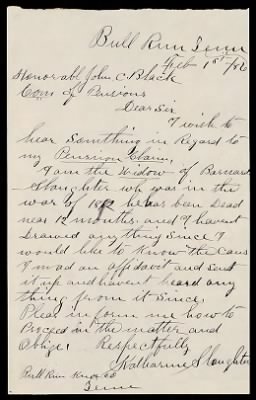 Bull Run Tenn
Feb 1st /86
Honorabl John C. Black
Com of Pensions
Dear Sir
I wish to
hear Somthing in Regard to
my Pension Claim,
I am the Widow of Barnard
Slaughter who was in the
war of 1812 he has ben Dead
near 12 months. and I havent
Drawed any thing Since I
would like to Know the Caus
I mad an affidavit and sent
it up and havent heard any
thing from it Since,
Pleas in form me how to
Proceed in the matter and
Oblige, Respectfully
Katharine Slaughter
Bull Run Knox Co
Tenn